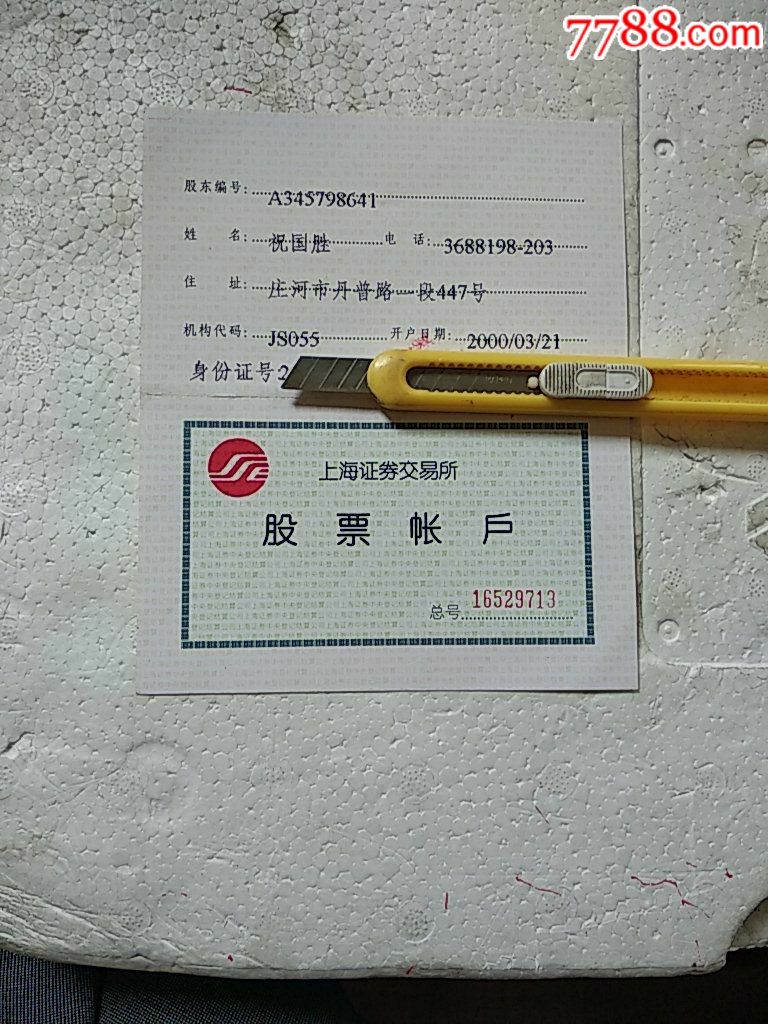 7788.com
股东编号: A345798641
姓 名: 祝国胜 电 话: 3688198-203
住 址: 庄河市丹普路一段447号
机构代码: JS055 开户日期: 2000/03/21
身份证号2
上海证券交易所
股票帐戶
总号 16529713